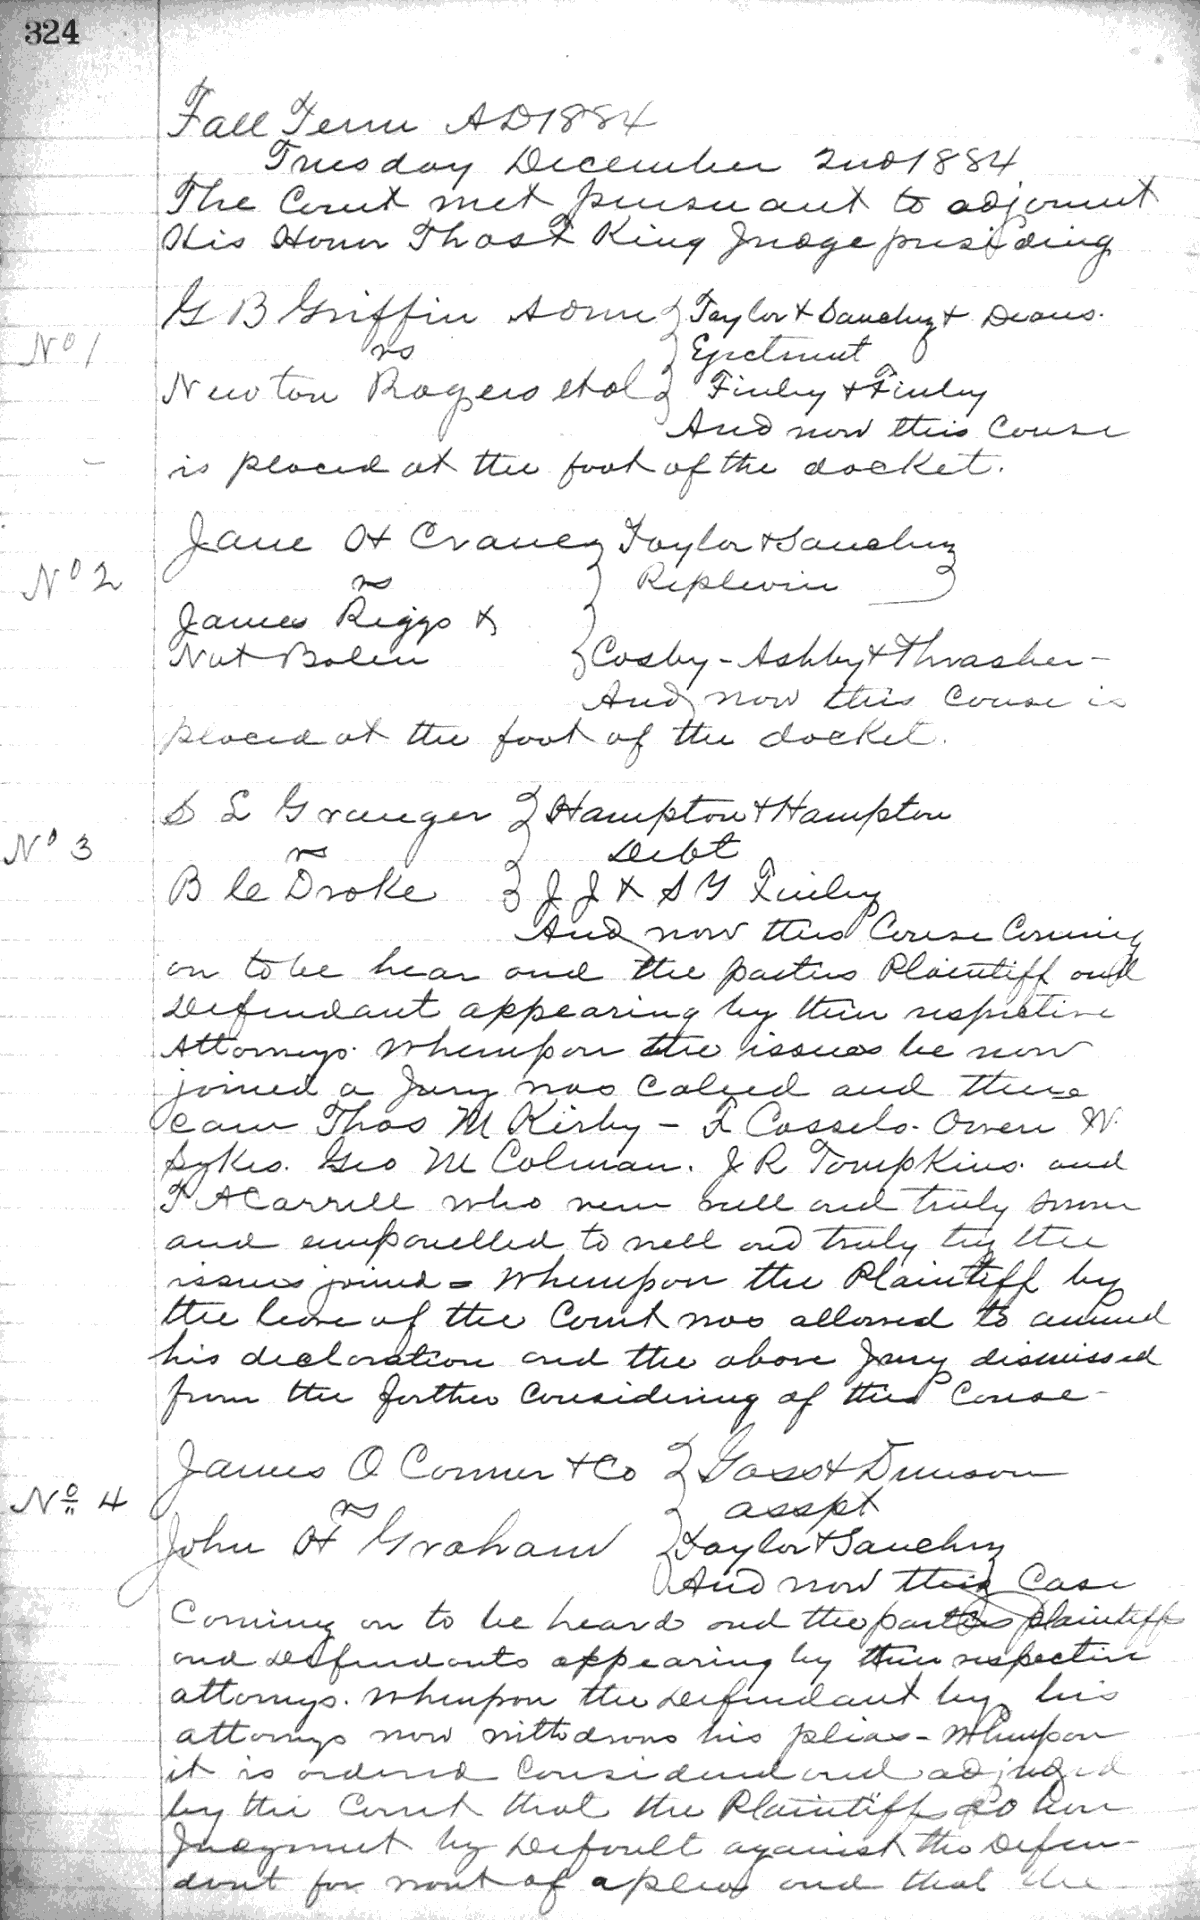 324
Fall Term AD 1884
Tuesday December 2nd 1884
The Court met pursuant to adjornmt
His Honor Thos F King Judge presiding
G B Griffin Admr } Taylor & Sanchez & Deans.
No 1
vs } Ejectment
Newton Rogers et al } Finley & Finley
And now this Couse
is placed at the foot of the docket.
Jane H Craney } Taylor & Sanchez
No 2
vs } Replevin }
James Riggs &
Nat Bolen } Cosby - Ashby & Thrasher -
And now this Couse is
placed at the foot of the docket.
S L Granger } Hampton & Hampton
No 3
vs } Debt
B C Droke } J J & S Y Finley
And now this Couse Coming
on to be hear and the parties Plaintiff and
Defendant appearing by their respective
Attorneys. Whereupon the issues be now
joined a Jury was Called and there
Came Thos M Kirby - F Cassels. Owen W.
Sykes. Geo M Colman. J R Tompkins. and
T A Carrell who were well and truly sworn
and empanelled to well and truly try the
issues joined = Whereupon the Plaintiff by
the leave of the Court was allowed to amend
his declaration and the above Jury dismissed
from the further Considering of this Couse -
James O Connor & Co } Goss & Dunson
No 4
vs } asspt
John H Graham } Taylor & Sanchez
} And now this Case
Coming on to be heard and the parties plaintiff
and Defendants appearing by their respective
attorneys. Whereupon the Defendant by his
attorneys now withdraws his pleas - Whereupon
it is ordered Considered and adjudged
by the Court that the Plaintiff do have
Judgment by Default against the Defen-
dant for want of a plea and that the